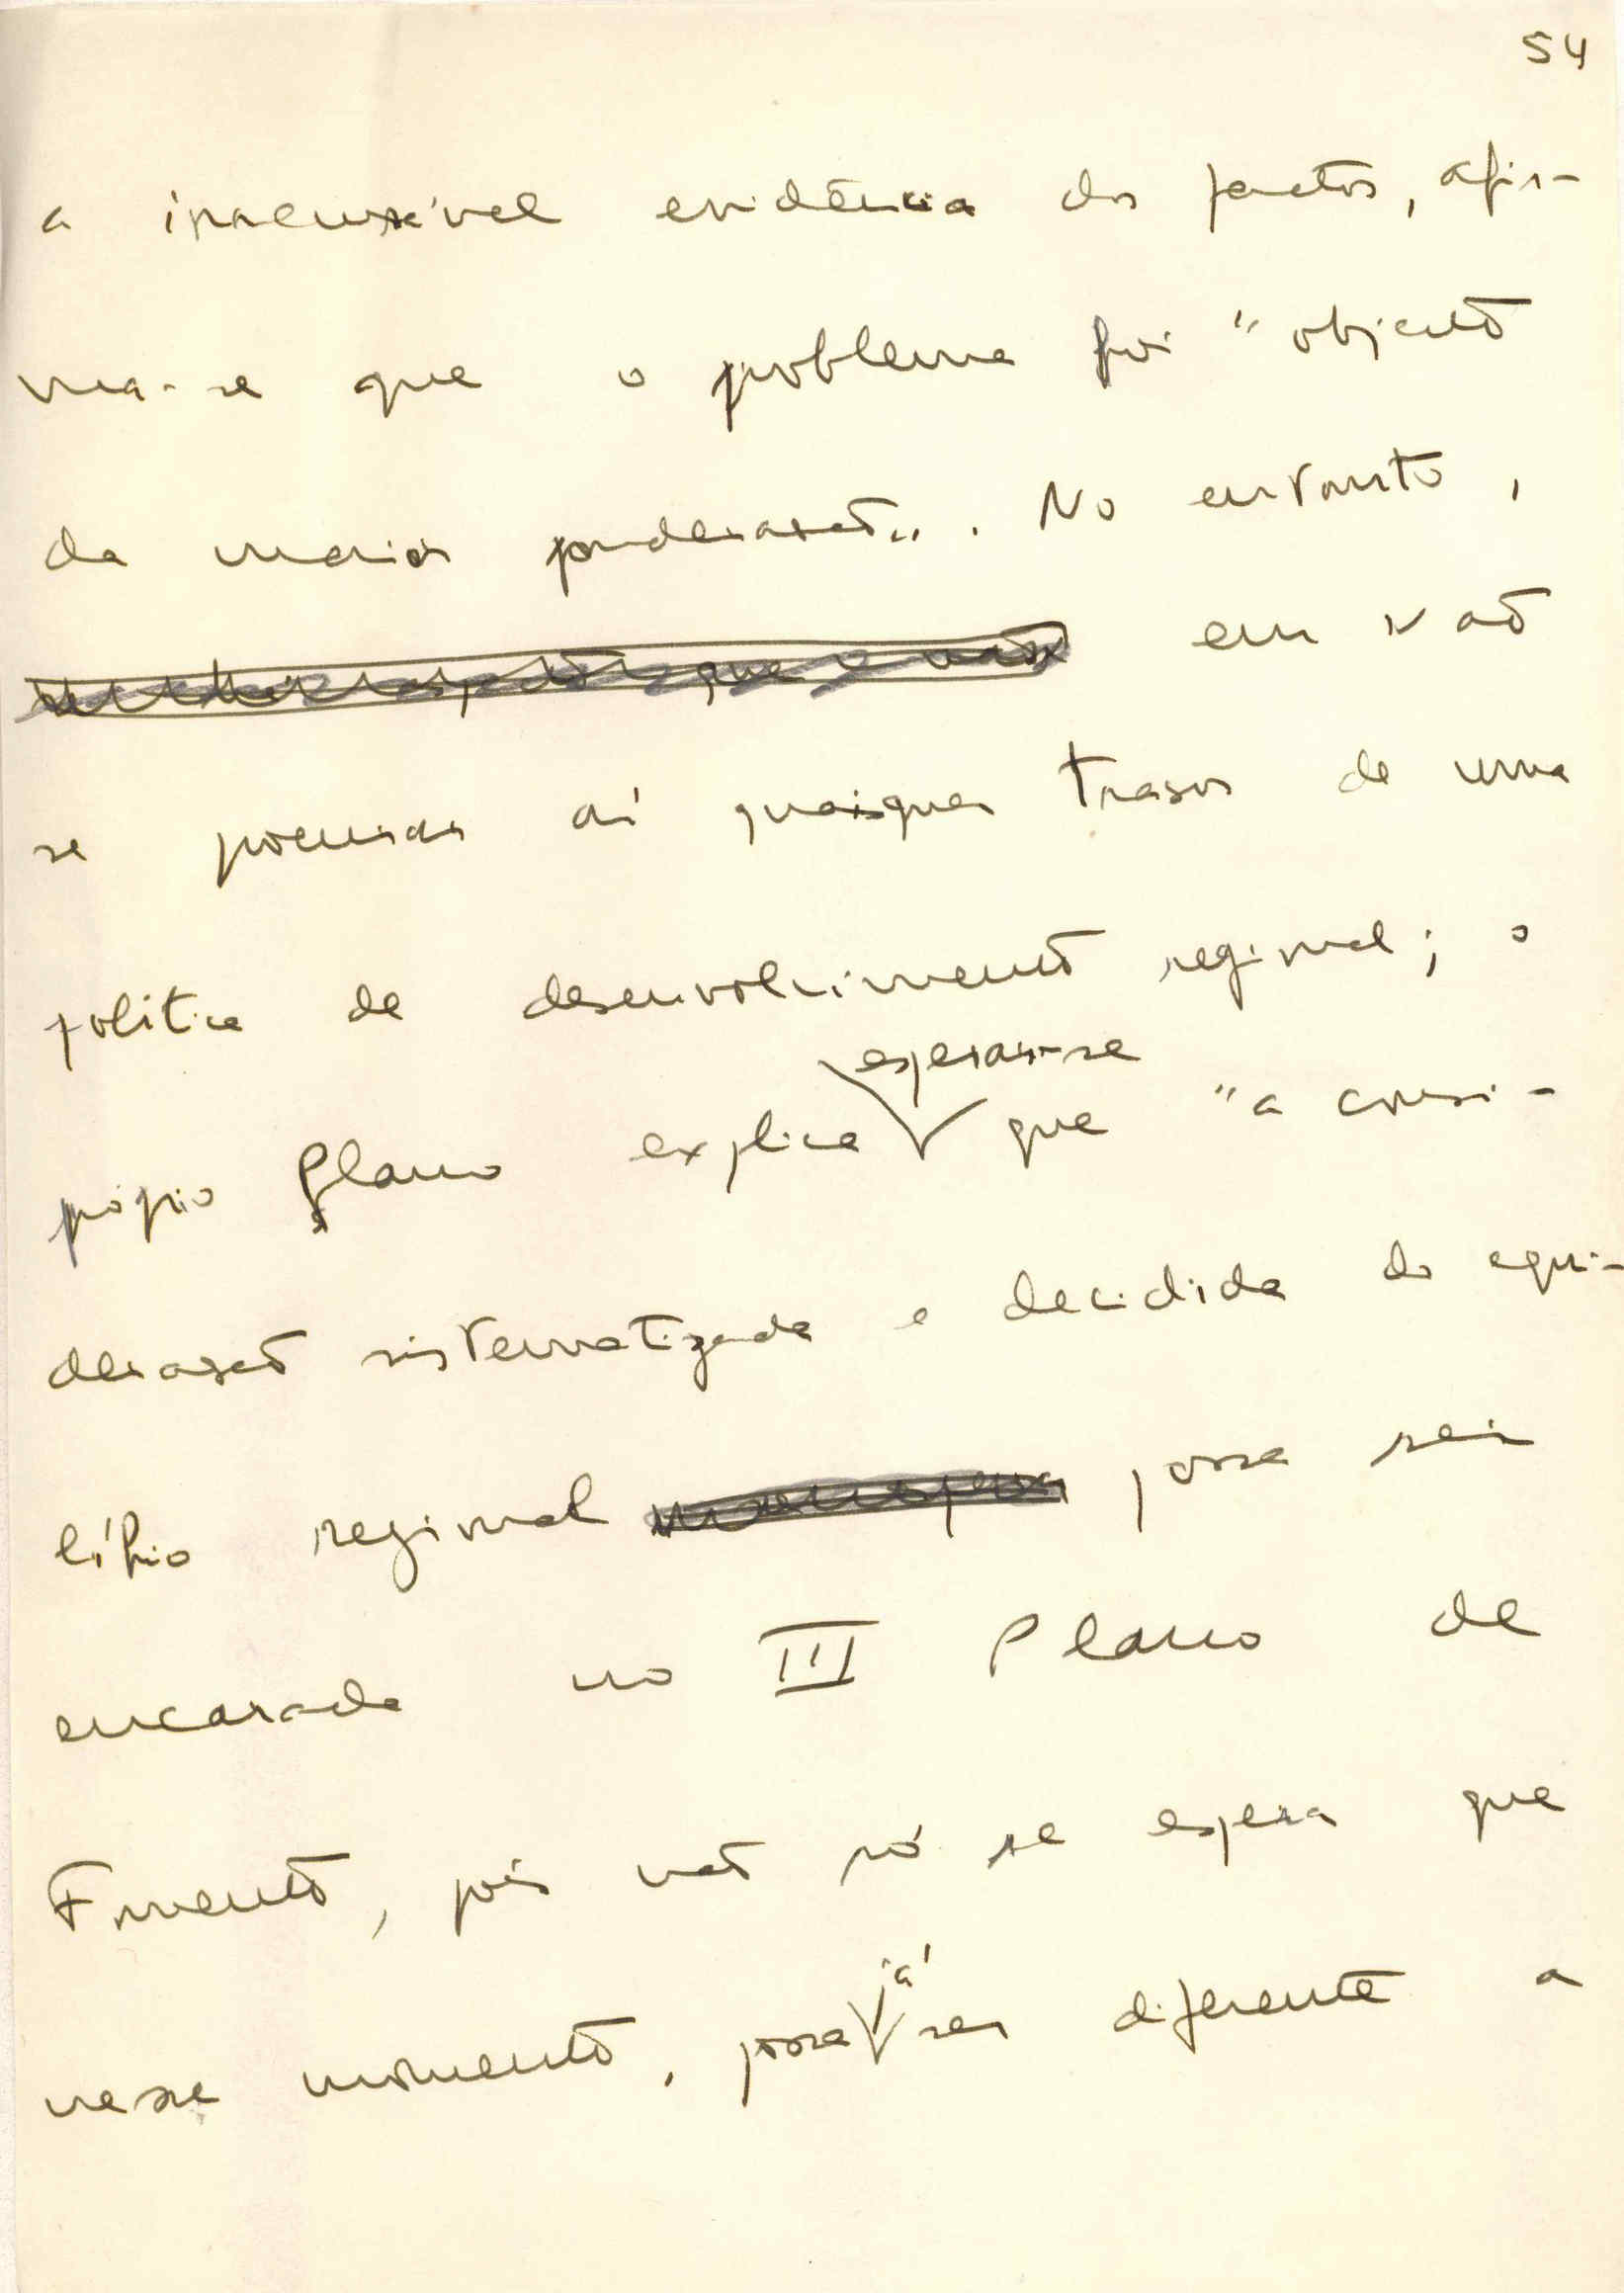 54
a irrecusável evidência dos factos, afir-
ma-se que o problema foi "objecto
da maior ponderação". No entanto,
em vão
se procurar aí quaisquer traços de uma
política de desenvolvimento regional; o
esperar-se
próprio Plano explica que "a consi-
deração sistematizada e decidida do equi-
líbrio regional possa ser
encarada no III Plano de
Fomento, pois não só se espera que
já
nesse momento, possa ser diferente a